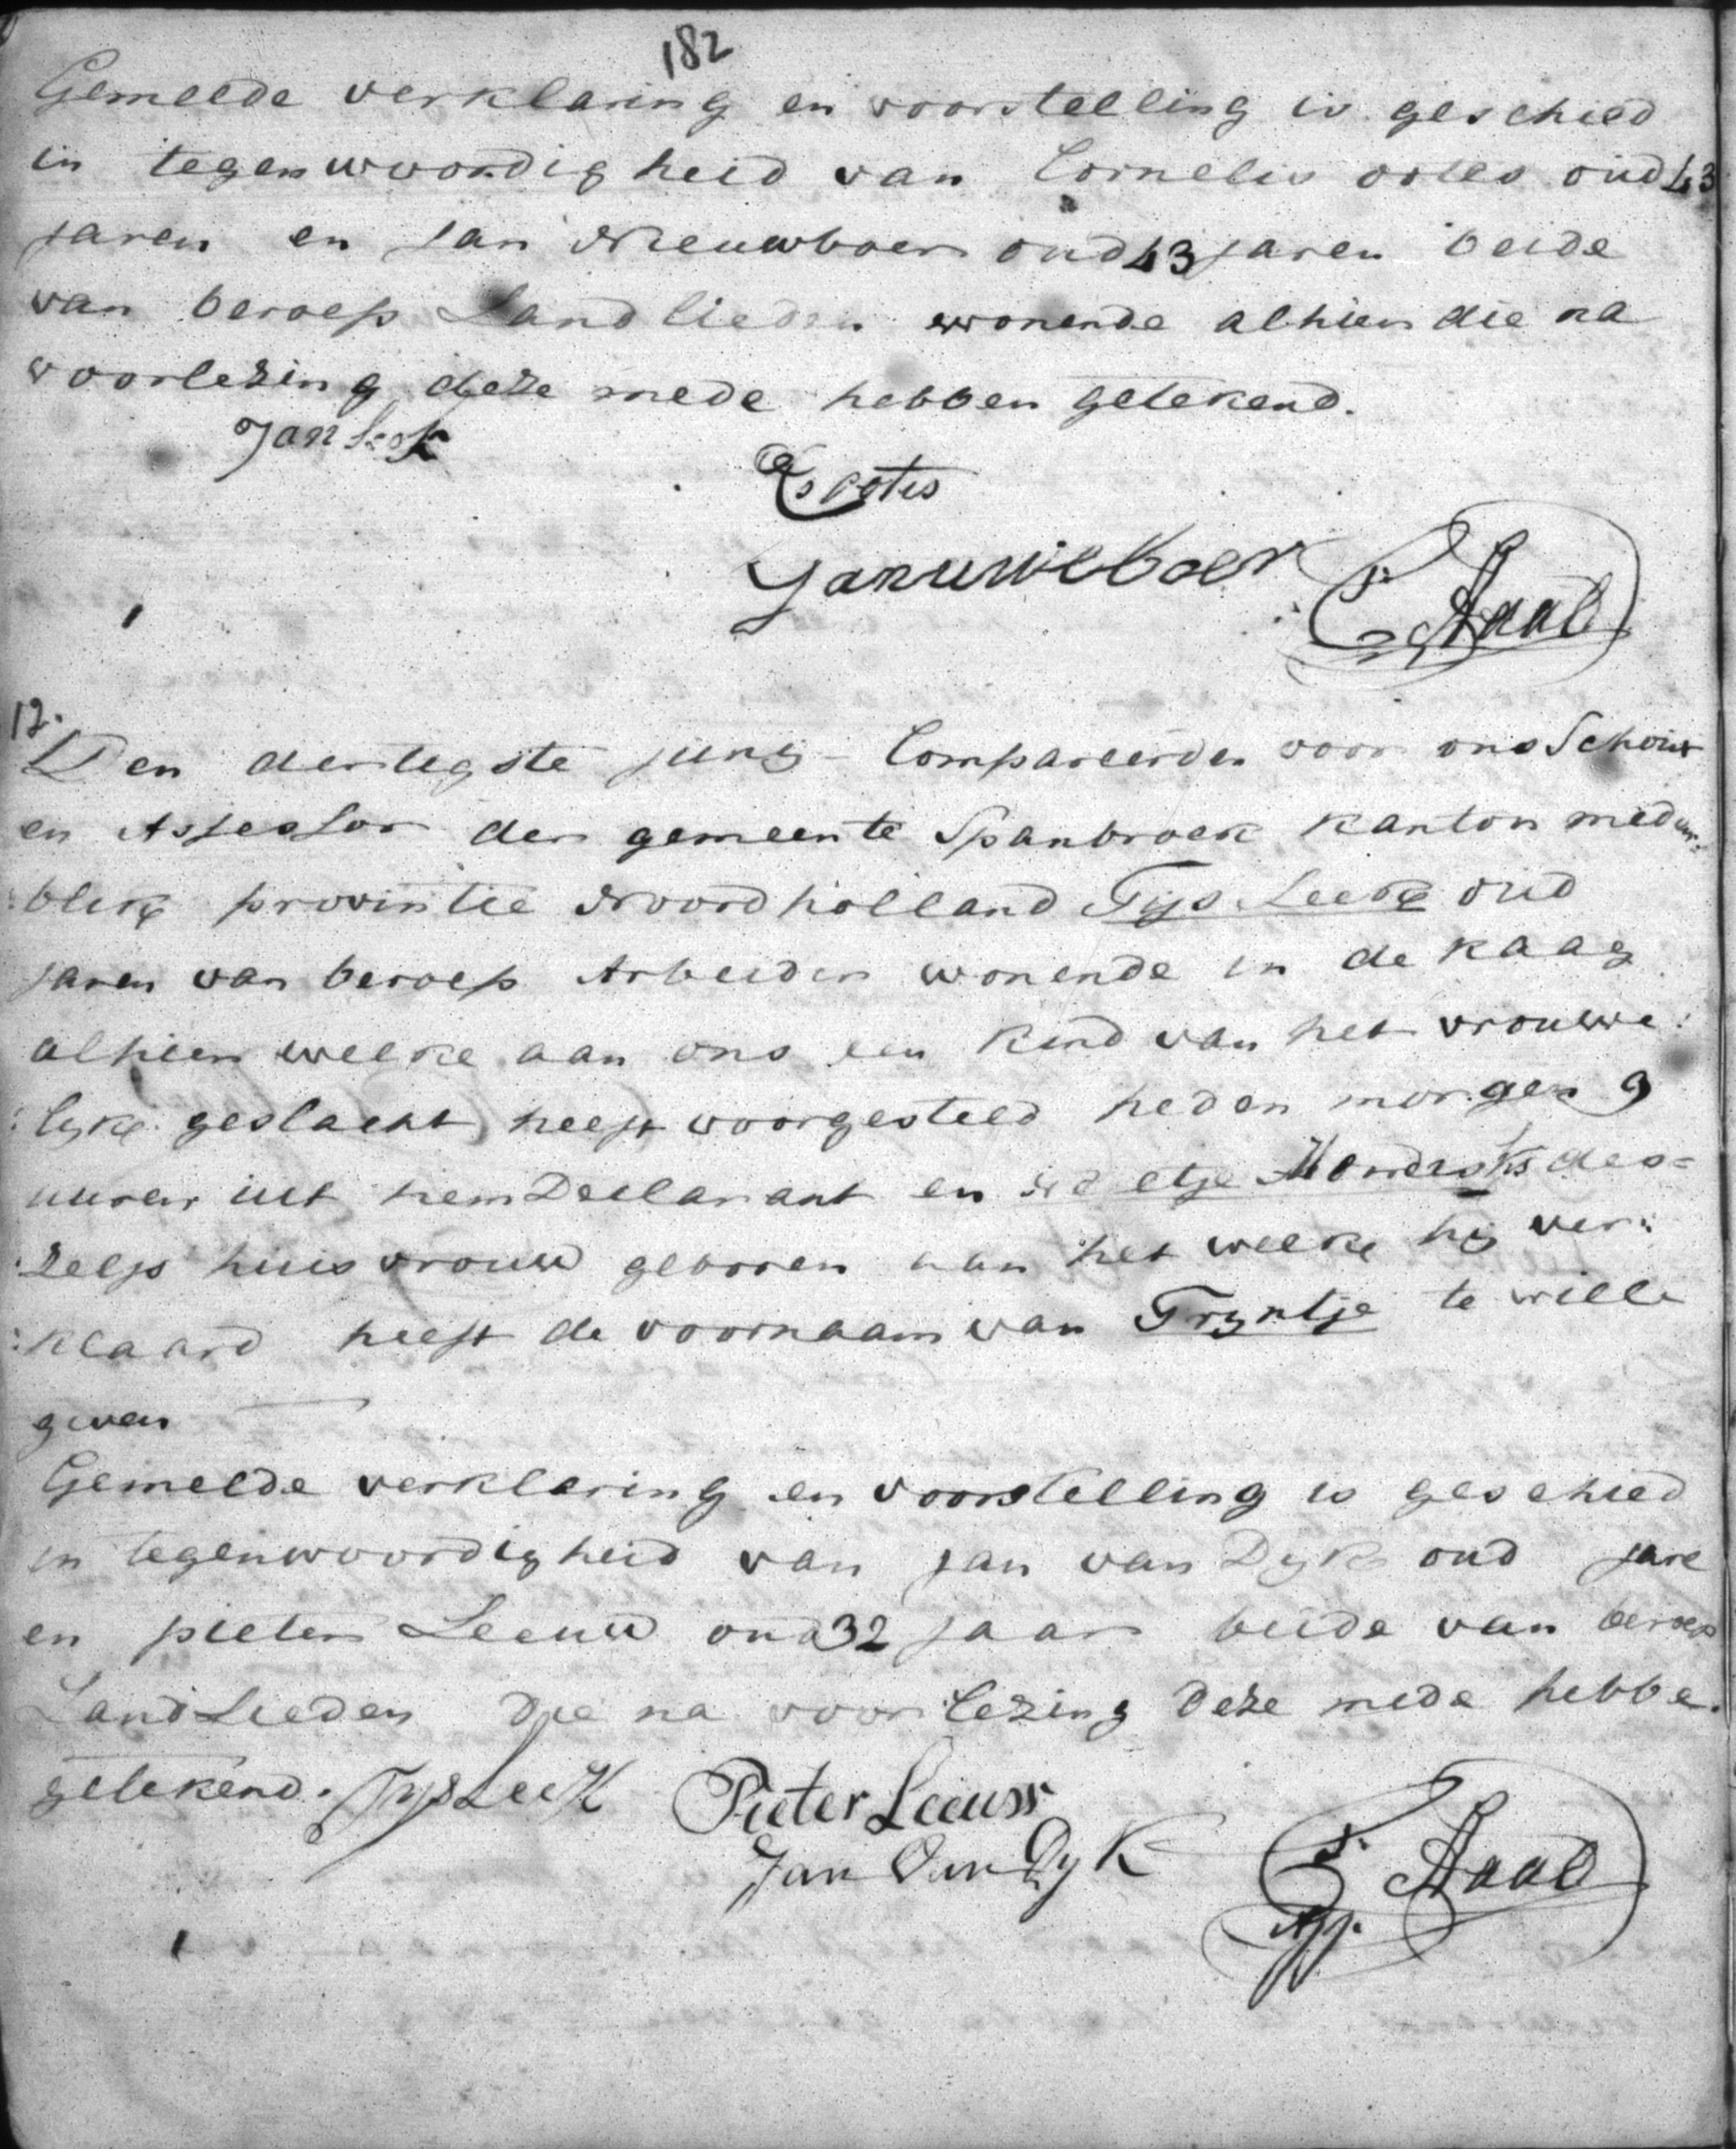 182
Gemelde verklaring en voorstelling is geschied
in tegenwoordigheid van Cornelis ootes oud 43
jaren en Jan Nieuwboer oud 43 jaren beide
van beroep Landlieden wonende alhier die na
voorlezing deze mede hebben getekend.
Jan Leek
Cs ootes
Jan
P. Haal
17.
Den dertegste juny Compareerden voor ons Schout
en Assessor der gemeente Spanbroek kanton medem:
:blik provintie Noordholland Tijs Leek oud
jaren van beroep Arbeider wonende in de kaag
alhier welke aan ons een kind van het vrouwe:
:lyke geslacht heeft voorgesteld heden morgen 9
uuren uit hem Declarant en des=
:zelfs huisvrouw gebooren aan het welke hij ver:
:klaard heeft de voornaam van Tryntje te wille
geven
Gemelde verklaring en voorstelling is geschied
in tegenwoordigheid van jan van Dyk oud jare
en pieter Leeuw oud 32 jaar beide van beroep
Landlieden Die na voorlezing Deze mede hebbe.
getekend. Tys Leek Pieter Leeuw
Jan Van Dyk
P. Haal
Ass.